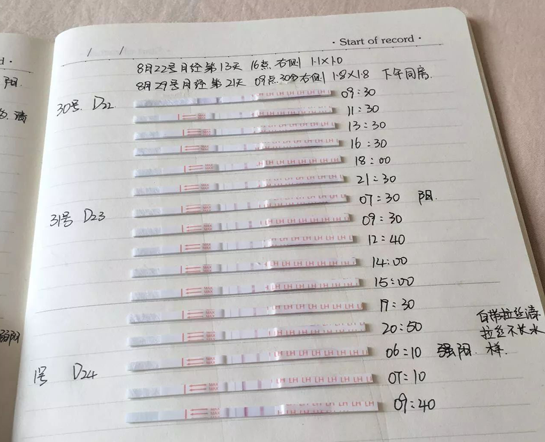 · Start of record ·
8月22号月经第13天 16点.右侧 1.1×1.0
8月29号月经第21天 09点30分右侧 1.8×1.8 下午同房.
30号. D22
09:30
11:30
13:30
16:30
18:00
21:30
07:30 阳.
31号 D23
09:30
12:40
14:00
15:00
19:30
20:50
白带拉丝清
拉丝不长水
样.
06:10 强阳.
1号 D24
07:10
09:40
阳.
强阳